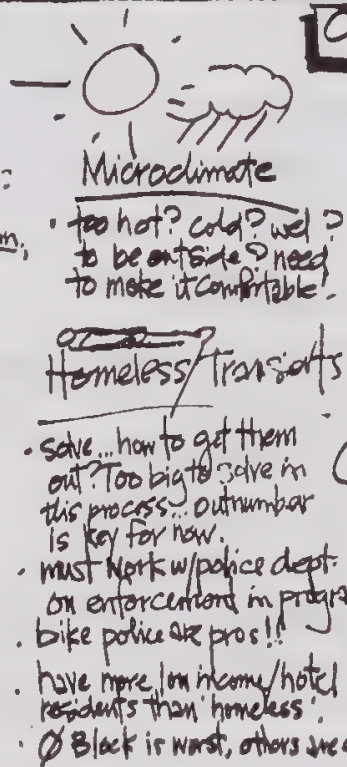 Microclimate
• too hot? cold? wet?
to be outside? need
to make it comfortable!
Homeless/Transients
• solve... how to get them
out? Too big to solve in
this process... outnumber
is key for now.
• must work w/police dept.
on enforcement in progra
• bike police are pros!!
• have more low income/hotel
residents than 'homeless'.
• Ø Block is worst, others are